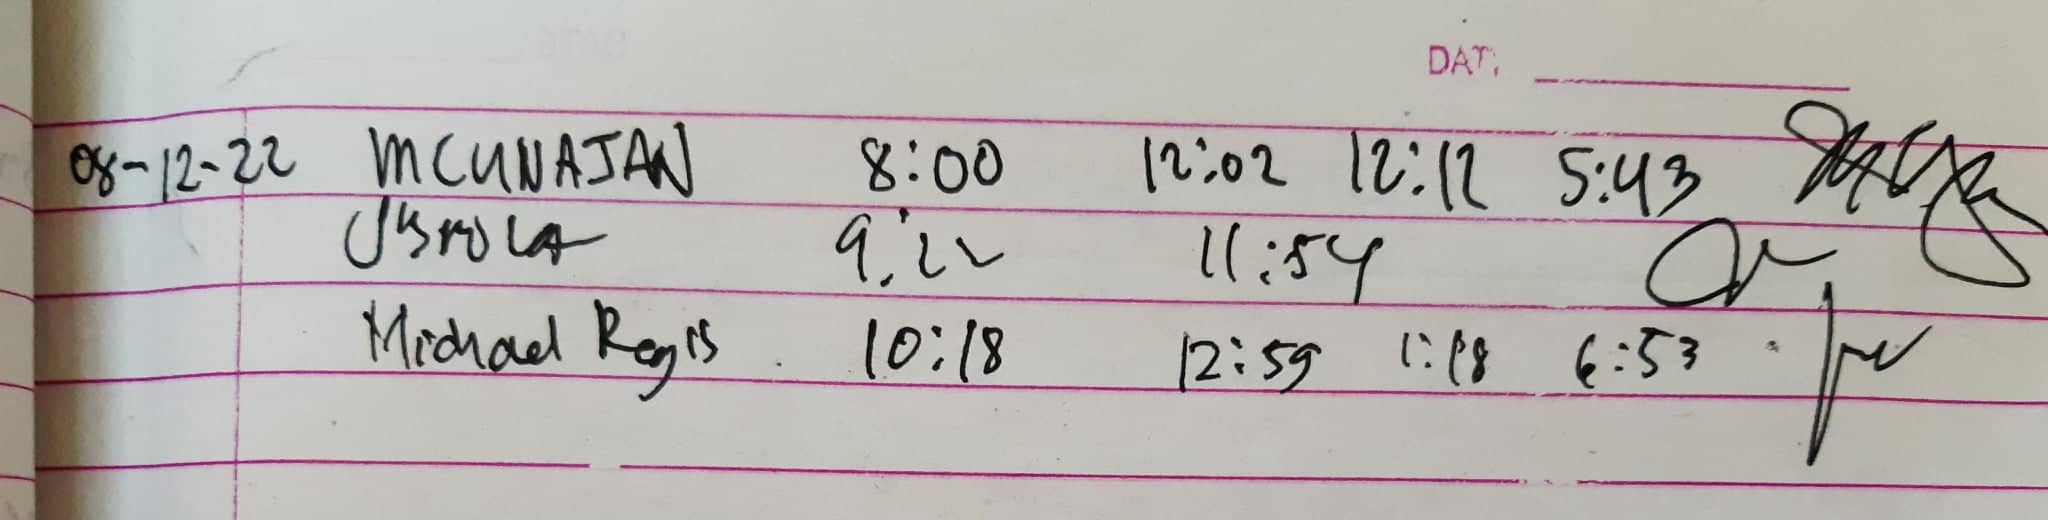 DATE
08-12-22 MCUNAJAN 8:00 12:02 12:12 5:43
9:22 11:54
Michael Regis 10:18 12:59 1:18 6:53